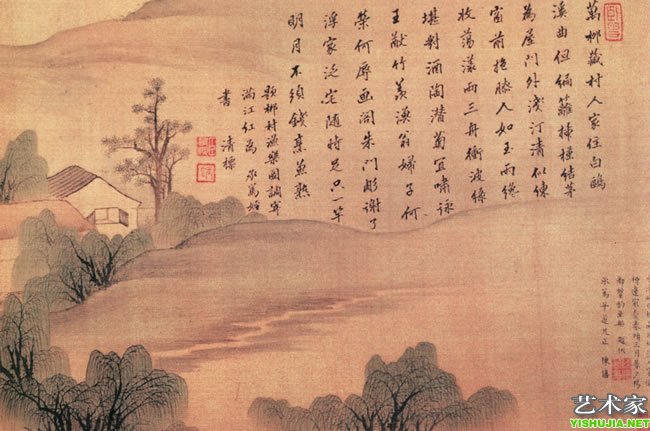 萬柳藏村人家住白鷗
溪曲但編蘿插槿結茅
為屋門外淺汀清似練
窗前抱膝人如玉雨纔
收蕩漾兩三舟衝波綠
堪對酒陶潛菊宜嘯詠
王猷竹羨漁翁婦子何
榮何辱画閣朱門彫謝了
浮家泛宅隨時足只一竿
明月不須錢烹魚熟
題柳村漁樂圖調寄
滿江紅為 承篤姪
書 清標
艺术家
YISHUJIA.NET